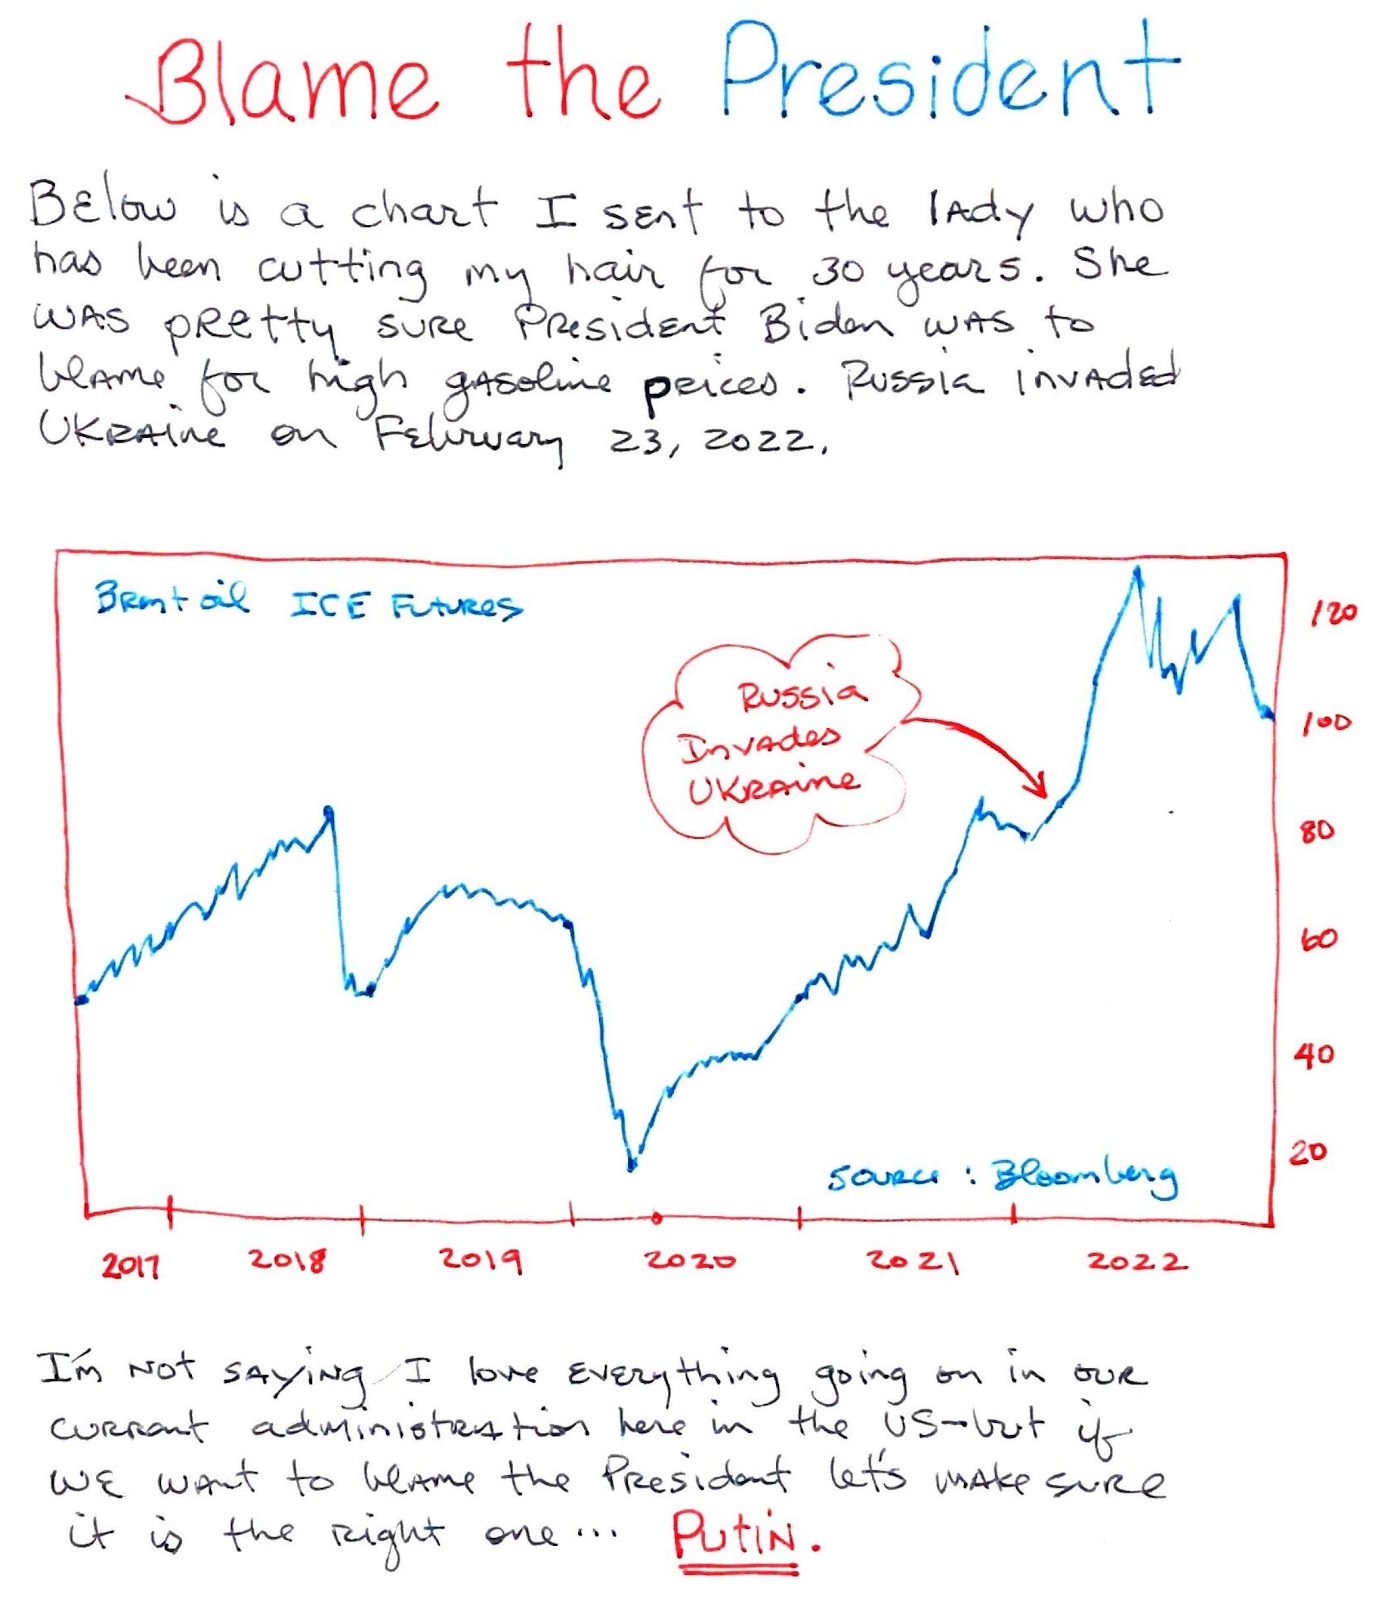 Blame the President
Below is a chart I sent to the lady who
has been cutting my hair for 30 years. She
was pretty sure President Biden was to
blame for high gasoline prices. Russia invaded
Ukraine on February 23, 2022.
Brent oil ICE Futures
120
Russia
Invades
Ukraine
100
80
60
40
20
Source: Bloomberg
2017 2018 2019 2020 2021 2022
I'm not saying I love everything going on in our
current administration here in the US-but if
we want to blame the President let's make sure
it is the right one... Putin.